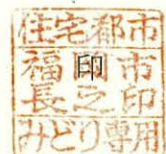 住宅都市
福印市
長之印
みどり専用